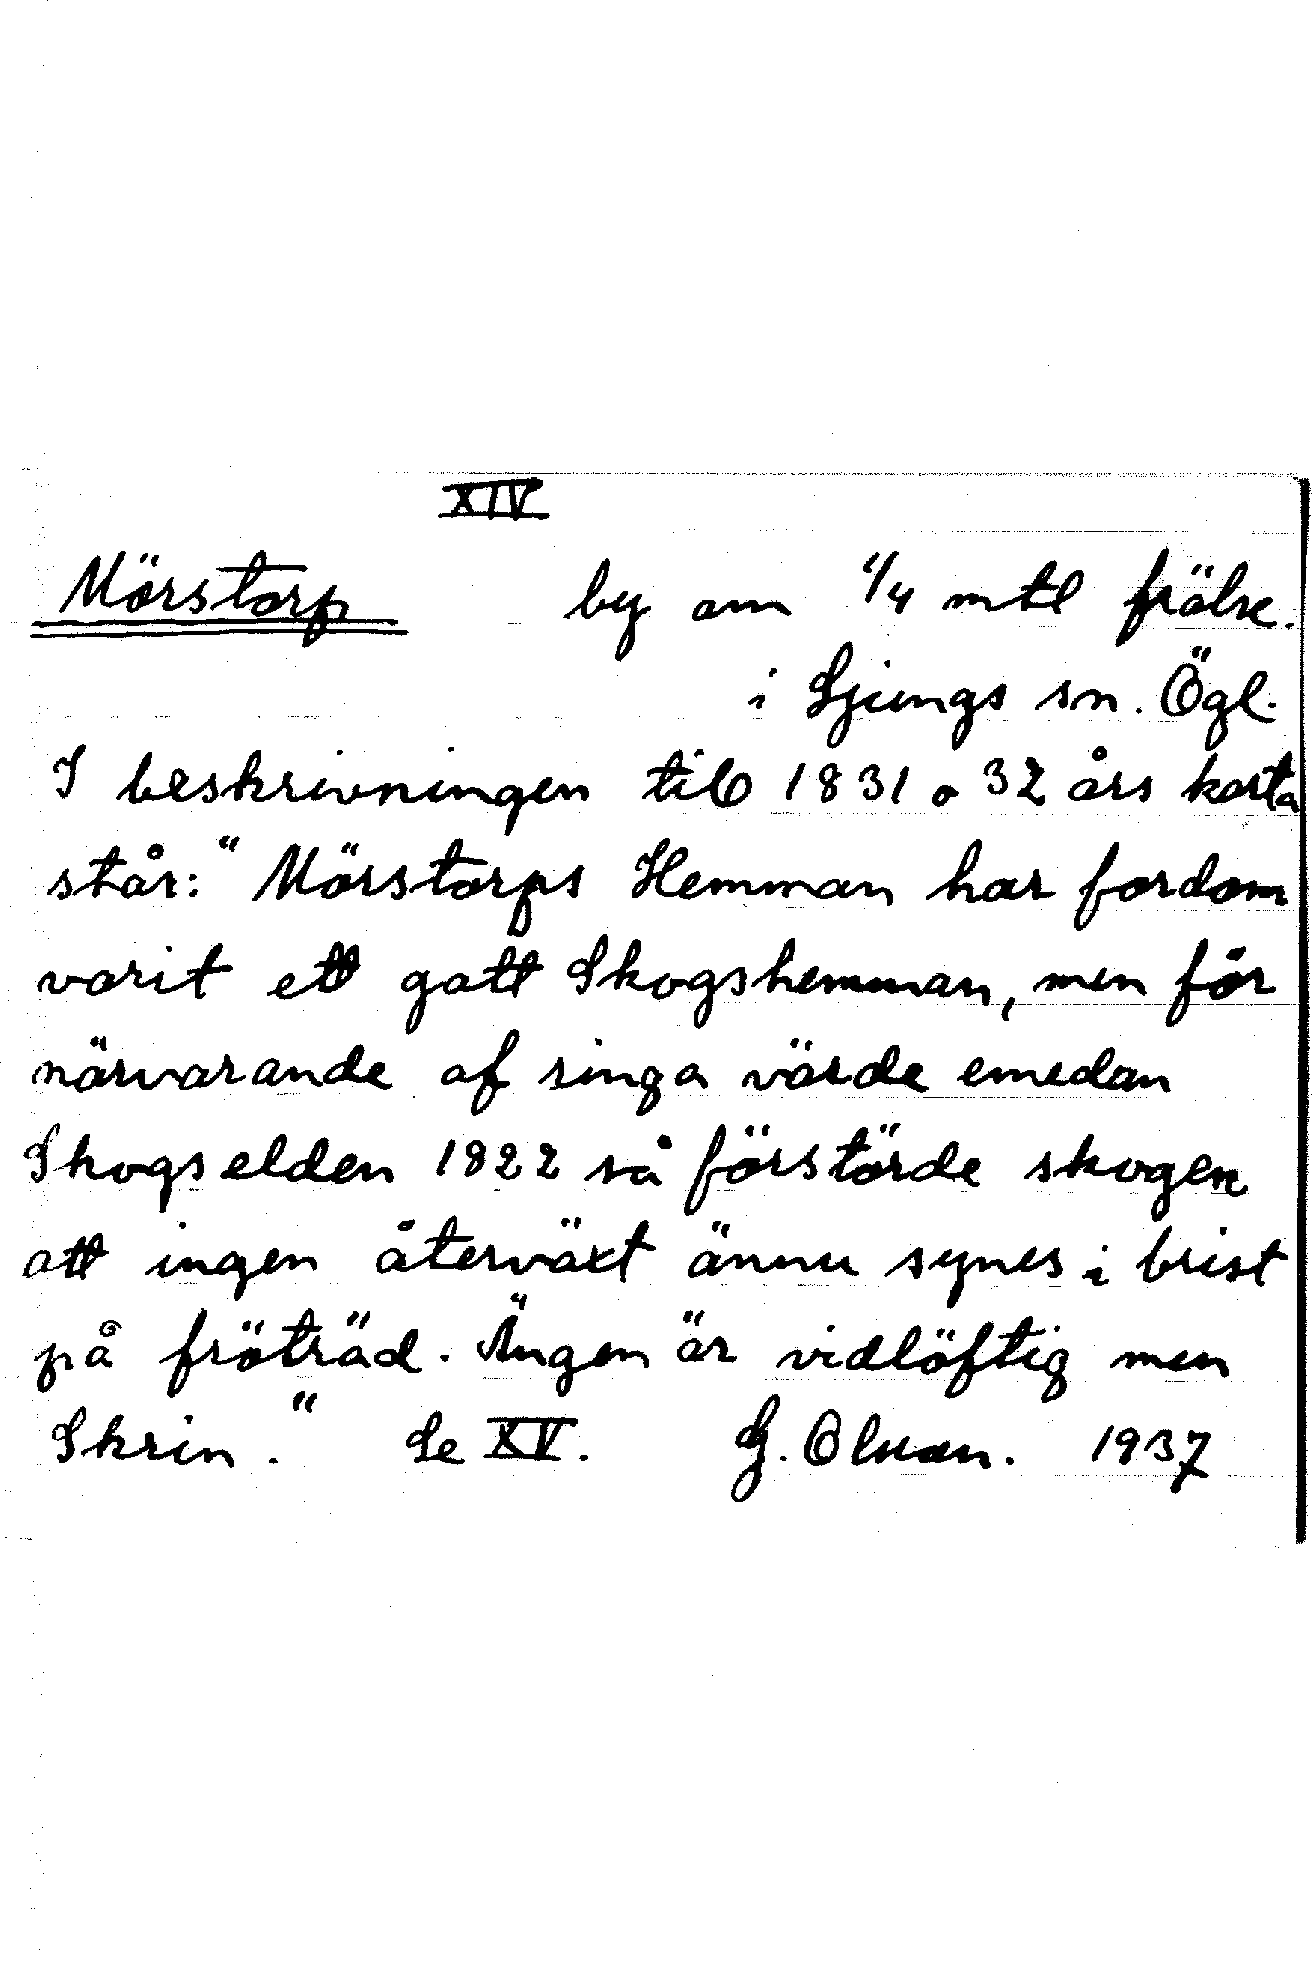 XIV
Mörstorp by om 1/4 mtl frälse.
i Ljungs sn. Ögl.
I beskrivningen till 1831 o 32 års karta
står: "Mörstorps Hemman har fordom
varit ett gott Skogshemman, men för
närvarande af ringa värde emedan
Skogselden 1822 så förstörde skogen
att ingen återväxt ännu synes i brist
på fröträd. Ängen är vidlöftig men
Skrin." Se XV. G. Olsson. 1937